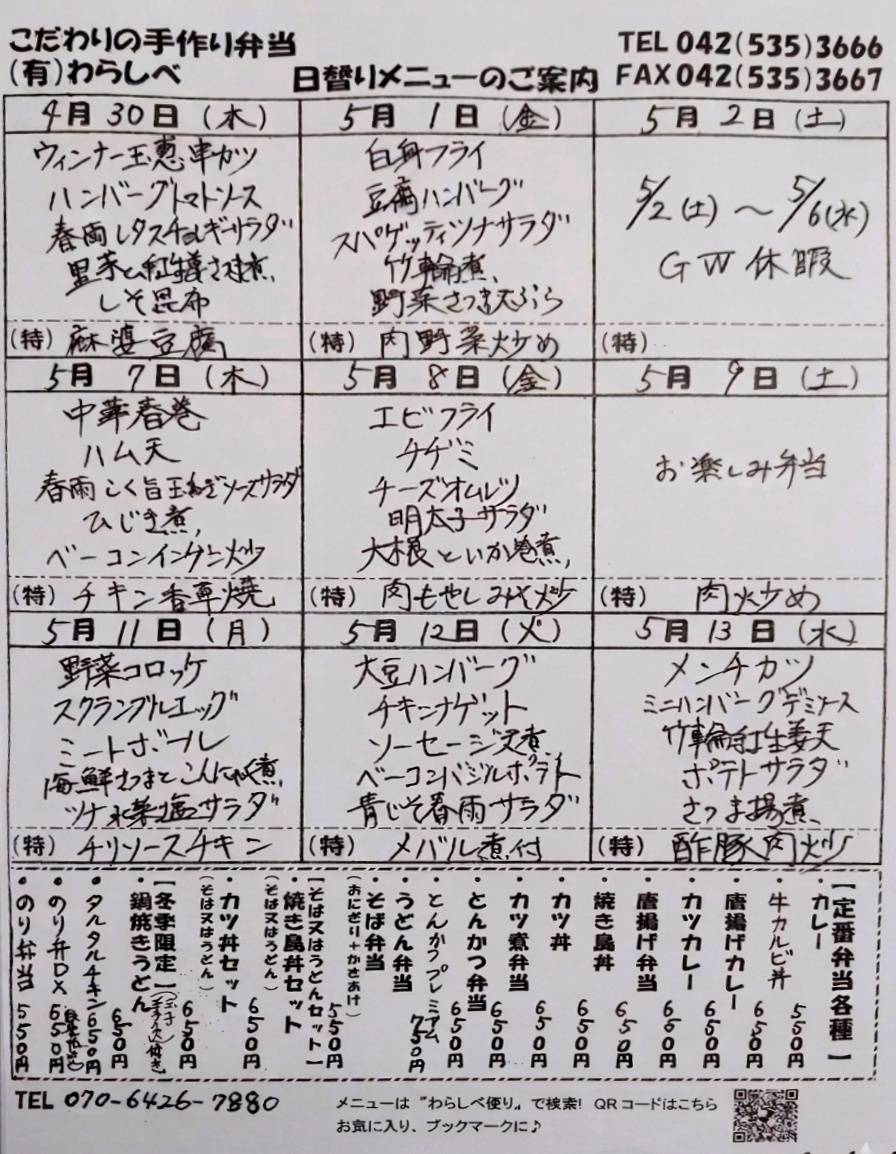 こだわりの手作り弁当
(有)わらしべ
日替りメニューのご案内
TEL 042(535)3666
FAX 042(535)3667
4月30日(木)
ウィンナー玉葱串カツ
ハンバーグトマトソース
春雨レタスチョレギサラダ
里芋と紅生姜さつま煮
しそ昆布
(特) 麻婆豆腐
5月1日(金)
白身フライ
豆腐ハンバーグ
スパゲッティツナサラダ
竹輪煮
野菜さつま天ぷら
(特) 肉野菜炒め
5月2日(土)
5/2(土)～5/6(水)
GW休暇
(特)
5月7日(木)
中華春巻
ハム天
春雨こく旨玉ねぎソースサラダ
ひじき煮
ベーコンインゲン炒
(特) チキン香草焼
5月8日(金)
エビフライ
チヂミ
チーズオムレツ
明太子サラダ
大根といか巻煮
(特) 肉もやしみそ炒
5月9日(土)
お楽しみ弁当
(特) 肉炒め
5月11日(月)
野菜コロッケ
スクランブルエッグ
ミートボール
海鮮さつまとこんにゃく煮
ツナ水菜塩サラダ
(特) チリソースチキン
5月12日(火)
大豆ハンバーグ
チキンナゲット
ソーセージ天煮
ベーコンバジルポテト
青じそ春雨サラダ
(特) メバル煮付
5月13日(水)
メンチカツ
ミニハンバーグデミソース
竹輪紅生姜天
ポテトサラダ
さつま揚煮
(特) 酢豚肉炒
【定番弁当各種】
・カレー 550円
・牛カルビ丼 650円
・唐揚げカレー 650円
・カツカレー 650円
・唐揚げ弁当 660円
・焼き鳥丼 650円
・カツ丼 650円
・カツ煮弁当 650円
・とんかつ弁当 650円
・とんかつプレミアム 750円
・うどん弁当
・そば弁当
(おにぎり+かきあげ) 550円
【そば又はうどんセット】
・焼き鳥丼セット
(そば又はうどん) 650円
・カツ丼セット
(そば又はうどん) 650円
【冬季限定】
・鍋焼きうどん 650円
・タルタルチキン 650円
・のり弁DX 650円
・のり弁当 550円
TEL 070-6426-7880
メニューは"わらしべ便り"で検索! QRコードはこちら
お気に入り、ブックマークに♪